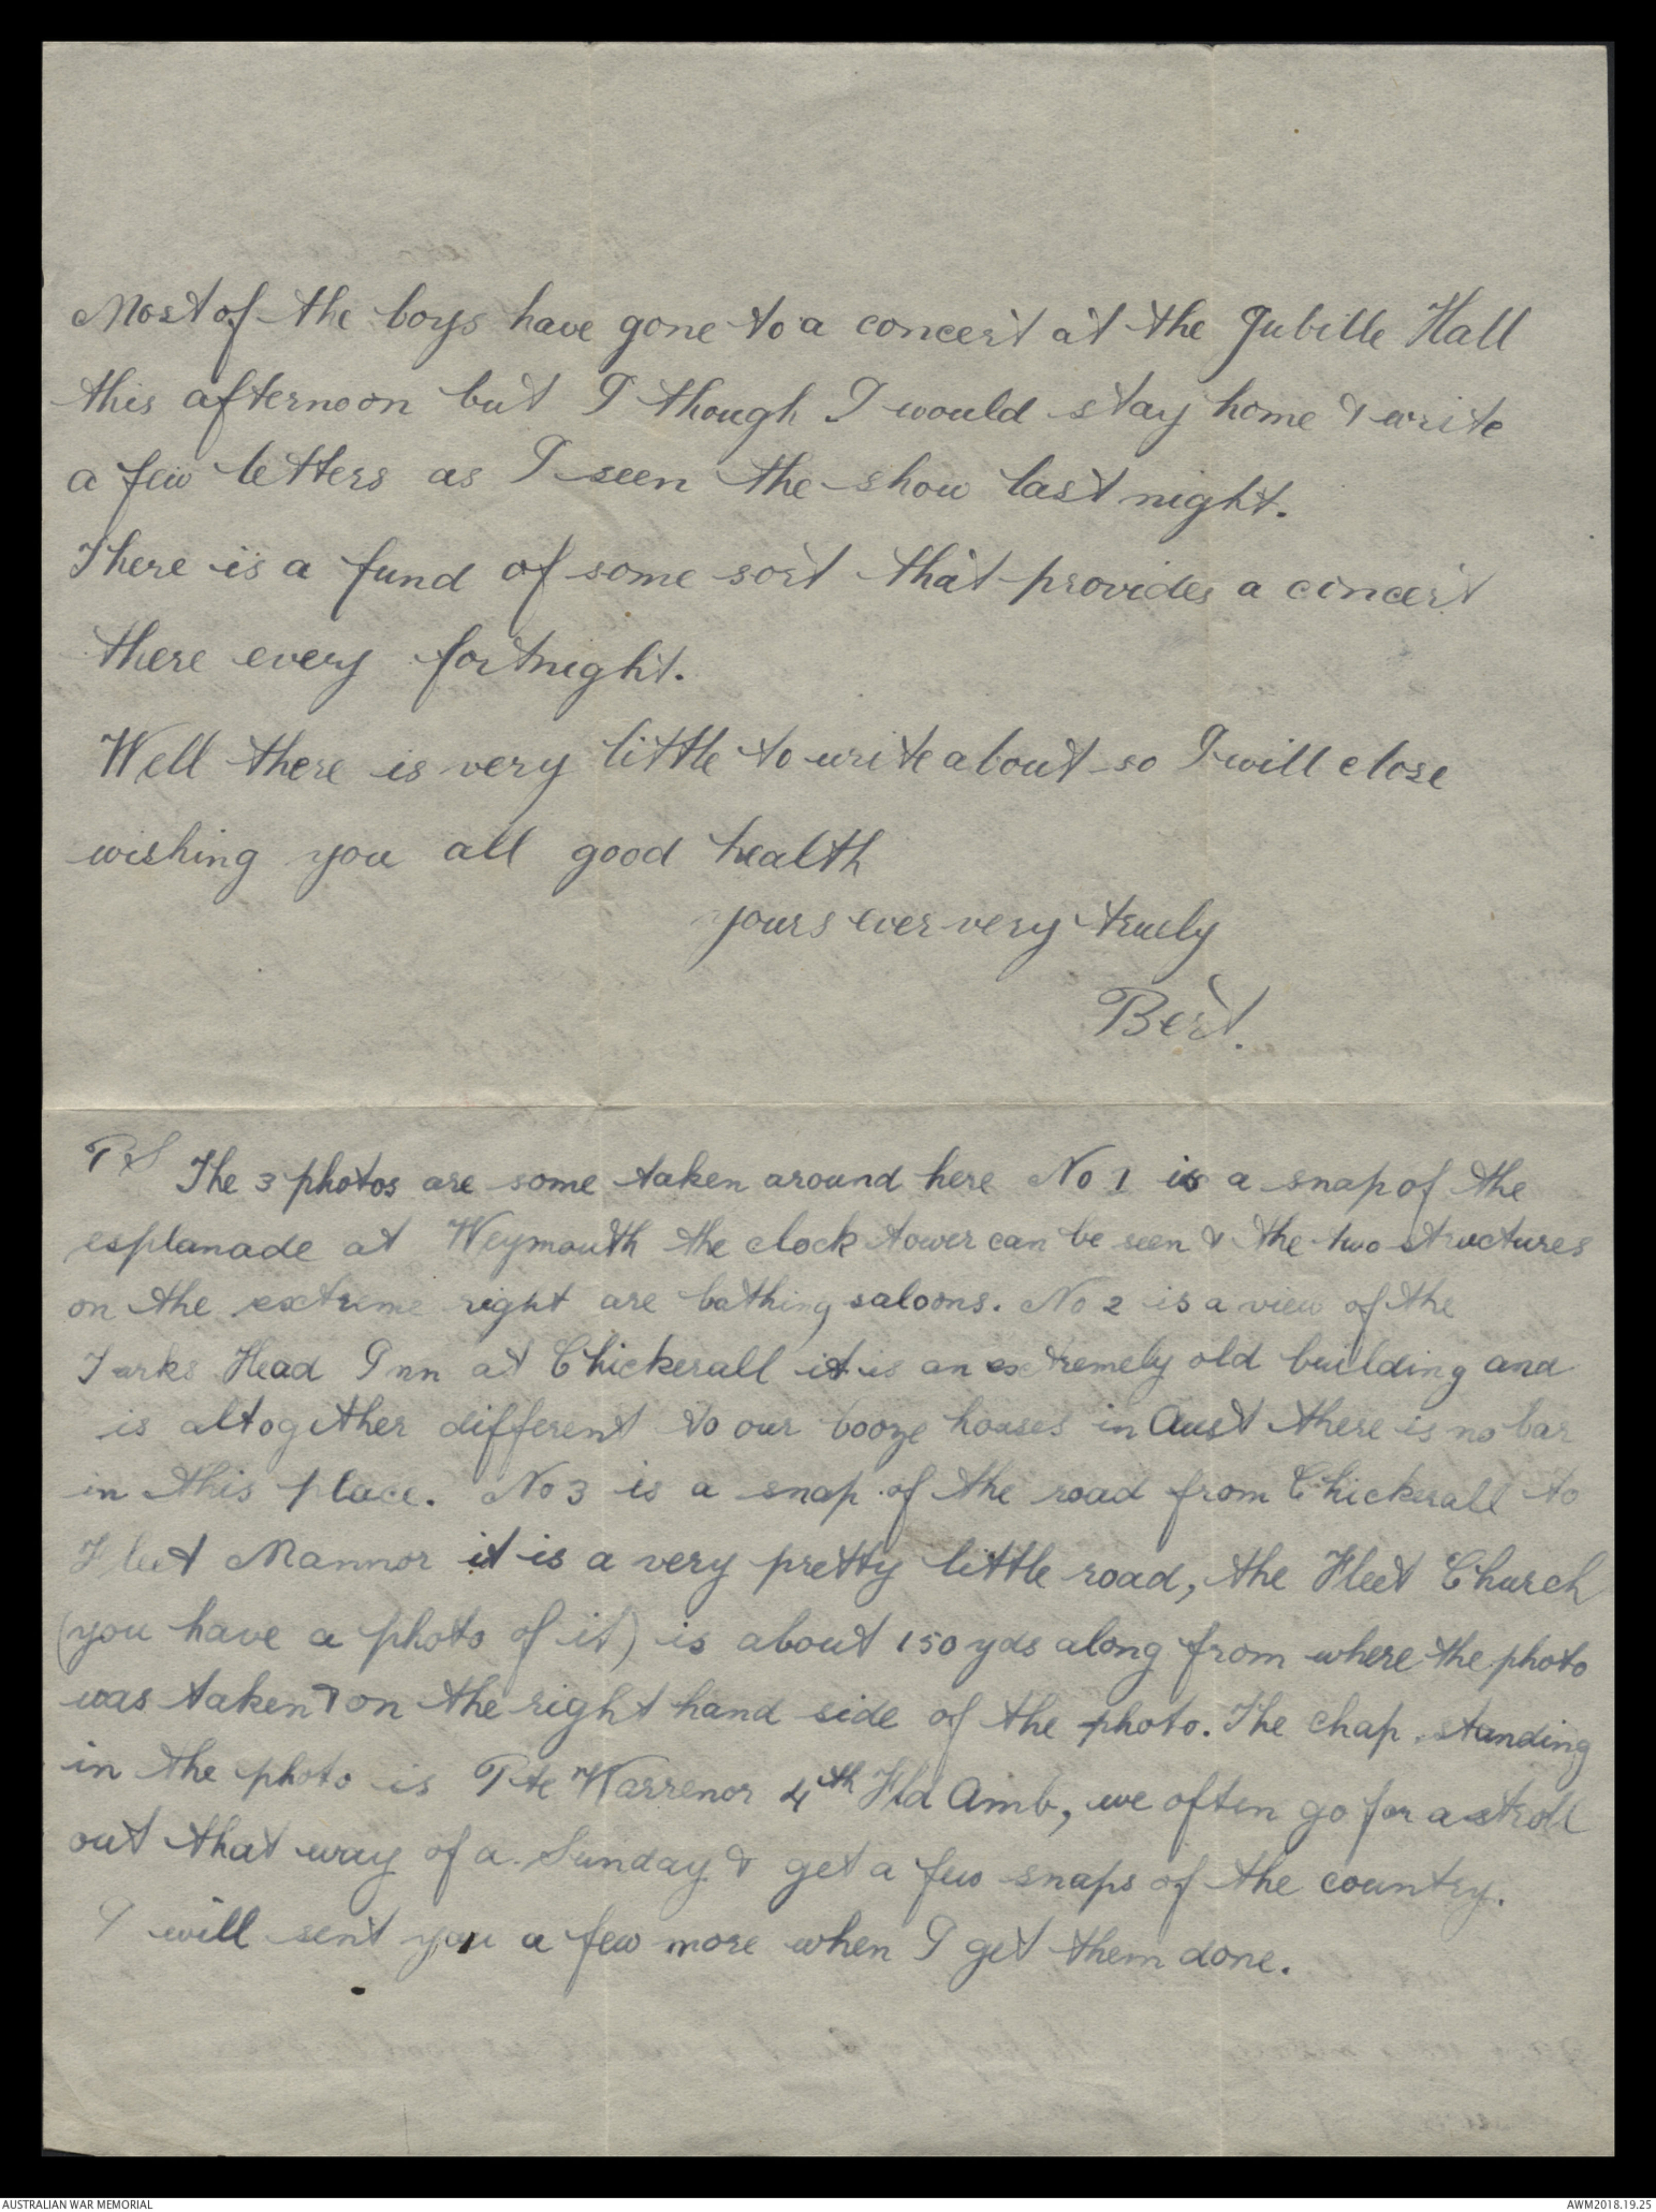 Most of the boys have gone to a concert at the Jubille Hall
this afternoon but I though I would stay home & write
a few letters as I seen the show last night.
There is a fund of some sort that provides a concert
there every fortnight.
Well there is very little to write about so I will close
wishing you all good health
yours ever very truely
Bert.
PS The 3 photos are some taken around here No 1 is a snap of the
esplanade at Weymouth the clock tower can be seen & the two structures
on the extreme right are bathing saloons. No 2 is a view of the
Turks Head Inn at Chickerall it is an extremely old building and
is altogether different to our booze houses in Aust there is no bar
in this place. No 3 is a snap of the road from Chickerall to
Fleet Mannor it is a very pretty little road, the Fleet Church
(you have a photo of it) is about 150 yds along from where the photo
was taken & on the right hand side of the photo. The chap standing
in the photo is Pte Warrenor 4th Fld Amb, we often go for a stroll
out that way of a Sunday & get a few snaps of the country.
I will sent you a few more when I get them done.
AUSTRALIAN WAR MEMORIAL
AWM2018.19.25